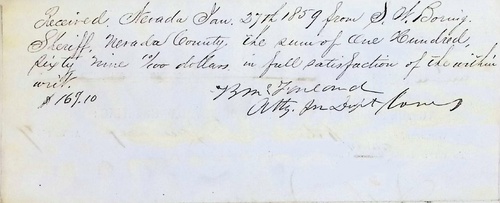 Received, Nevada Jan. 27th 1859 from S. W. Boring,
Sheriff, Nevada County, the sum of One Hundred,
sixty nine 10/100 dollars in full satisfaction of the within
writ.
$169.10
Atty.